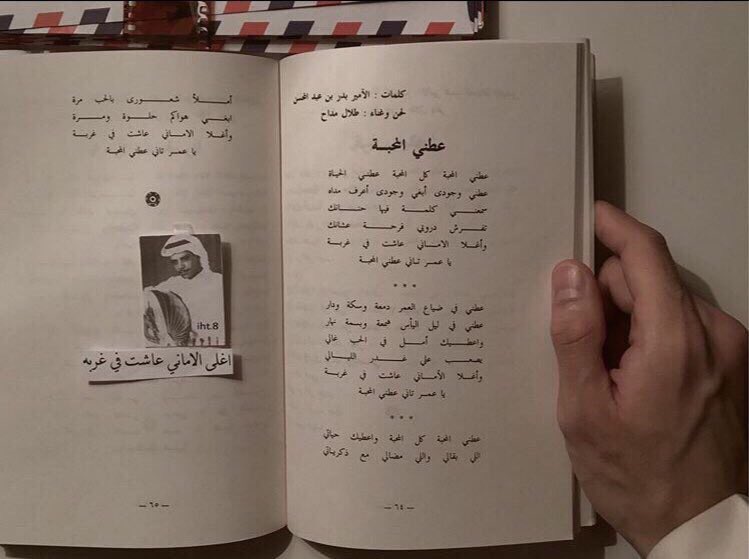 كلمات : الأمير بدر بن عبد المحسن
لحن وغناء : طلال مداح
عطني المحبة
عطني المحبة كل المحبة عطني الحياة
عطني وجودى أبغي وجودى أعرف مداه
سمعني كلمة فيها حنانك
تفرش دروبي فرحة عشانك
وأغلا الاماني عاشت في غربة
يا عمر تاني عطني المحبة
* * *
عطني في ضياع العمر دمعة وسكة ودار
عطني في ليل اليأس شمعة وبسمة نهار
واعطيك أمل في الحب غالي
يصعب على غدر الليالي
وأغلا الأماني عاشت في غربة
يا عمر تاني عطني المحبة
* * *
عطني المحبة كل المحبة واعطيك حياتي
اللي بقالي واللي مضالي مع ذكرياتي
— ٦٤ —
أملأ شعورى بالحب مرة
ابغي هواكم حلوة ومرة
وأغلا الأماني عاشت في غربة
يا عمر تاني عطني المحبة
iht.8
اغلى الاماني عاشت في غربه
— ٦٥ —